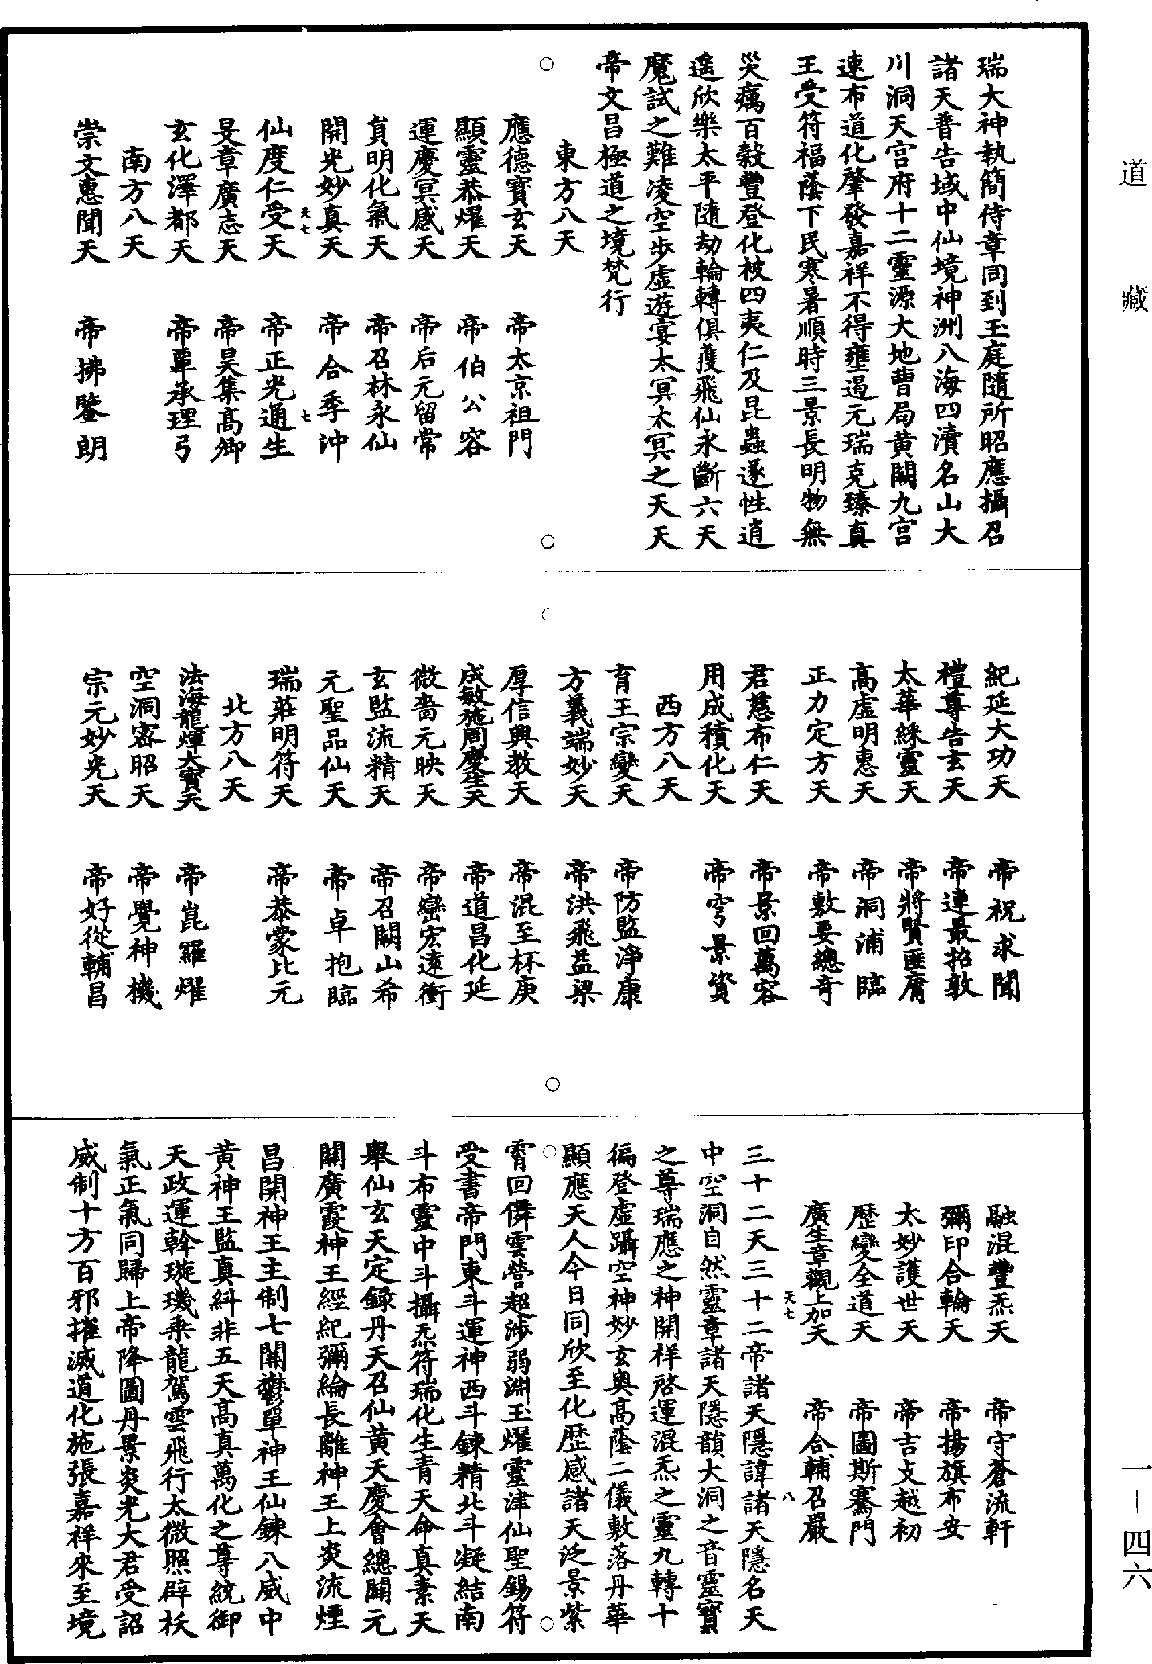 道藏
瑞大神執簡侍章同到玉庭隨所昭應攝召
諸天普告域中仙境神洲八海四瀆名山大
川洞天宮府十二靈源大地曹局黃闕九宮
速布道化肇發嘉祥不得壅遏元瑞克臻真
王受符福蔭下民寒暑順時三景長明物無
災癘百穀豐登化被四夷仁及昆蟲遂性逍
遥欣樂太平隨劫輪轉俱獲飛仙永斷六天
魔試之難凌空步虛遊宴太冥太冥之天天
帝文昌極道之境梵行
東方八天
應德寶玄天　帝太京祖門
顯靈恭燿天　帝伯公容
運慶冥感天　帝后元留常
貞明化氣天　帝召林永仙
開光妙真天　帝合季沖
天七　七
仙度仁受天　帝正光通生
旻章廣志天　帝昊集高御
玄化澤都天　帝單承理弓
南方八天
崇文惠聞天　帝拂鑒朗
紀延大功天　帝祝求聞
禮尊告玄天　帝連最招敦
太華絲靈天　帝將賢匪膺
高虛明惠天　帝洞浦臨
正力定方天　帝敷要總奇
君慈布仁天　帝景回萬容
用成積化天　帝穹景資
西方八天
育王宗變天　帝防監淨康
方義端妙天　帝洪飛益梁
厚信興教天　帝混至杯庚
成敏施周慶生天　帝道昌化延
微啬元映天　帝巒宏遠衝
玄監流精天　帝召闕山希
元聖品仙天　帝卓抱臨
瑞莊明符天　帝恭蒙比元
北方八天
法海龍煇大寶天　帝崑羅燿
空洞宻昭天　帝覺神機
宗元妙光天　帝好從輔昌
融混豐炁天　帝守蒼流軒
彌印合輪天　帝揚旗布安
太妙護世天　帝吉攴越初
歷變全道天　帝圖斯騫門
廣生章觀上加天　帝合輔召嚴
天七　八
三十二天三十二帝諸天隱諱諸天隱名天
中空洞自然靈章諸天隱韻大洞之音靈寶
之尊瑞應之神開祥啓運混炁之靈九轉十
徧登虛躡空神妙玄奥高蔭二儀敷落丹華
顯應天人今日同欣至化歷感諸天泛景紫
霄回儛雲營超涉弱淵玉燿靈津仙聖錫符
受書帝門東斗運神西斗鍊精北斗凝結南
斗布靈中斗攝炁符瑞化生青天命真素天
舉仙玄天定錄丹天召仙黃天慶會總關元
關廣霞神王經紀彌綸長離神王上炎流煙
昌開神王主制七關欝單神王仙鍊八威中
黃神王監真糾非五天高真萬化之尊統御
天政運斡璇璣乘龍駕雲飛行太微照辟袄
氣正氣同歸上帝降圖丹景炎光大君受詔
威制十方百邪摧滅道化施張嘉祥來至境
一—四六